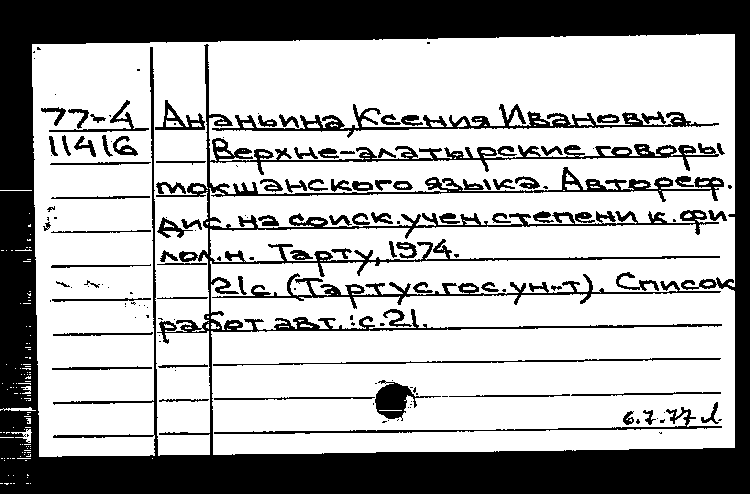 77-4 Ананьина, Ксения Ивановна.
11416 Верхне-алатырские говоры
мокшанского языка. Автореф.
дис. на соиск. учен. степени к. фи-
лол. н. Тарту, 1974.
21с. (Тартус. гос. ун-т). Список
работ авт.: с.21.
6.7.77 Л